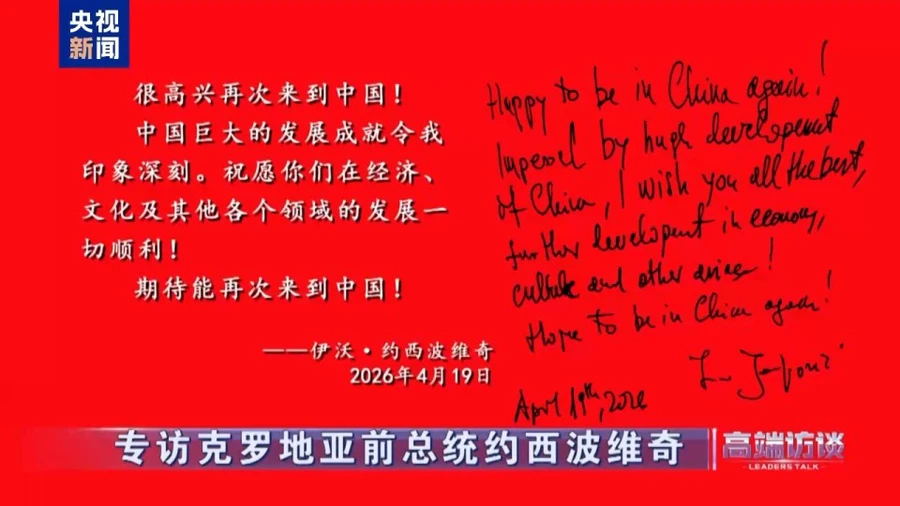 央视
新闻
很高兴再次来到中国！
中国巨大的发展成就令我
印象深刻。祝愿你们在经济、
文化及其他各个领域的发展一
切顺利！
期待能再次来到中国！
——伊沃·约西波维奇
2026年4月19日
Happy to be in China again!
by hugh development
of China, I wish you all the best,
further in economy,
and other
Hope to be in China again!
April 19th, 2026
专访克罗地亚前总统约西波维奇
高端访谈
LEADERS TALK